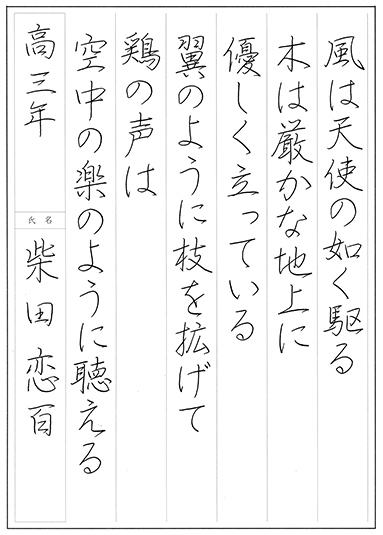 風は天使の如く駆る
木は厳かな地上に
優しく立っている
翼のように枝を拡げて
鶏の声は
空中の楽のように聴える
高三年
氏名
柴田恋百